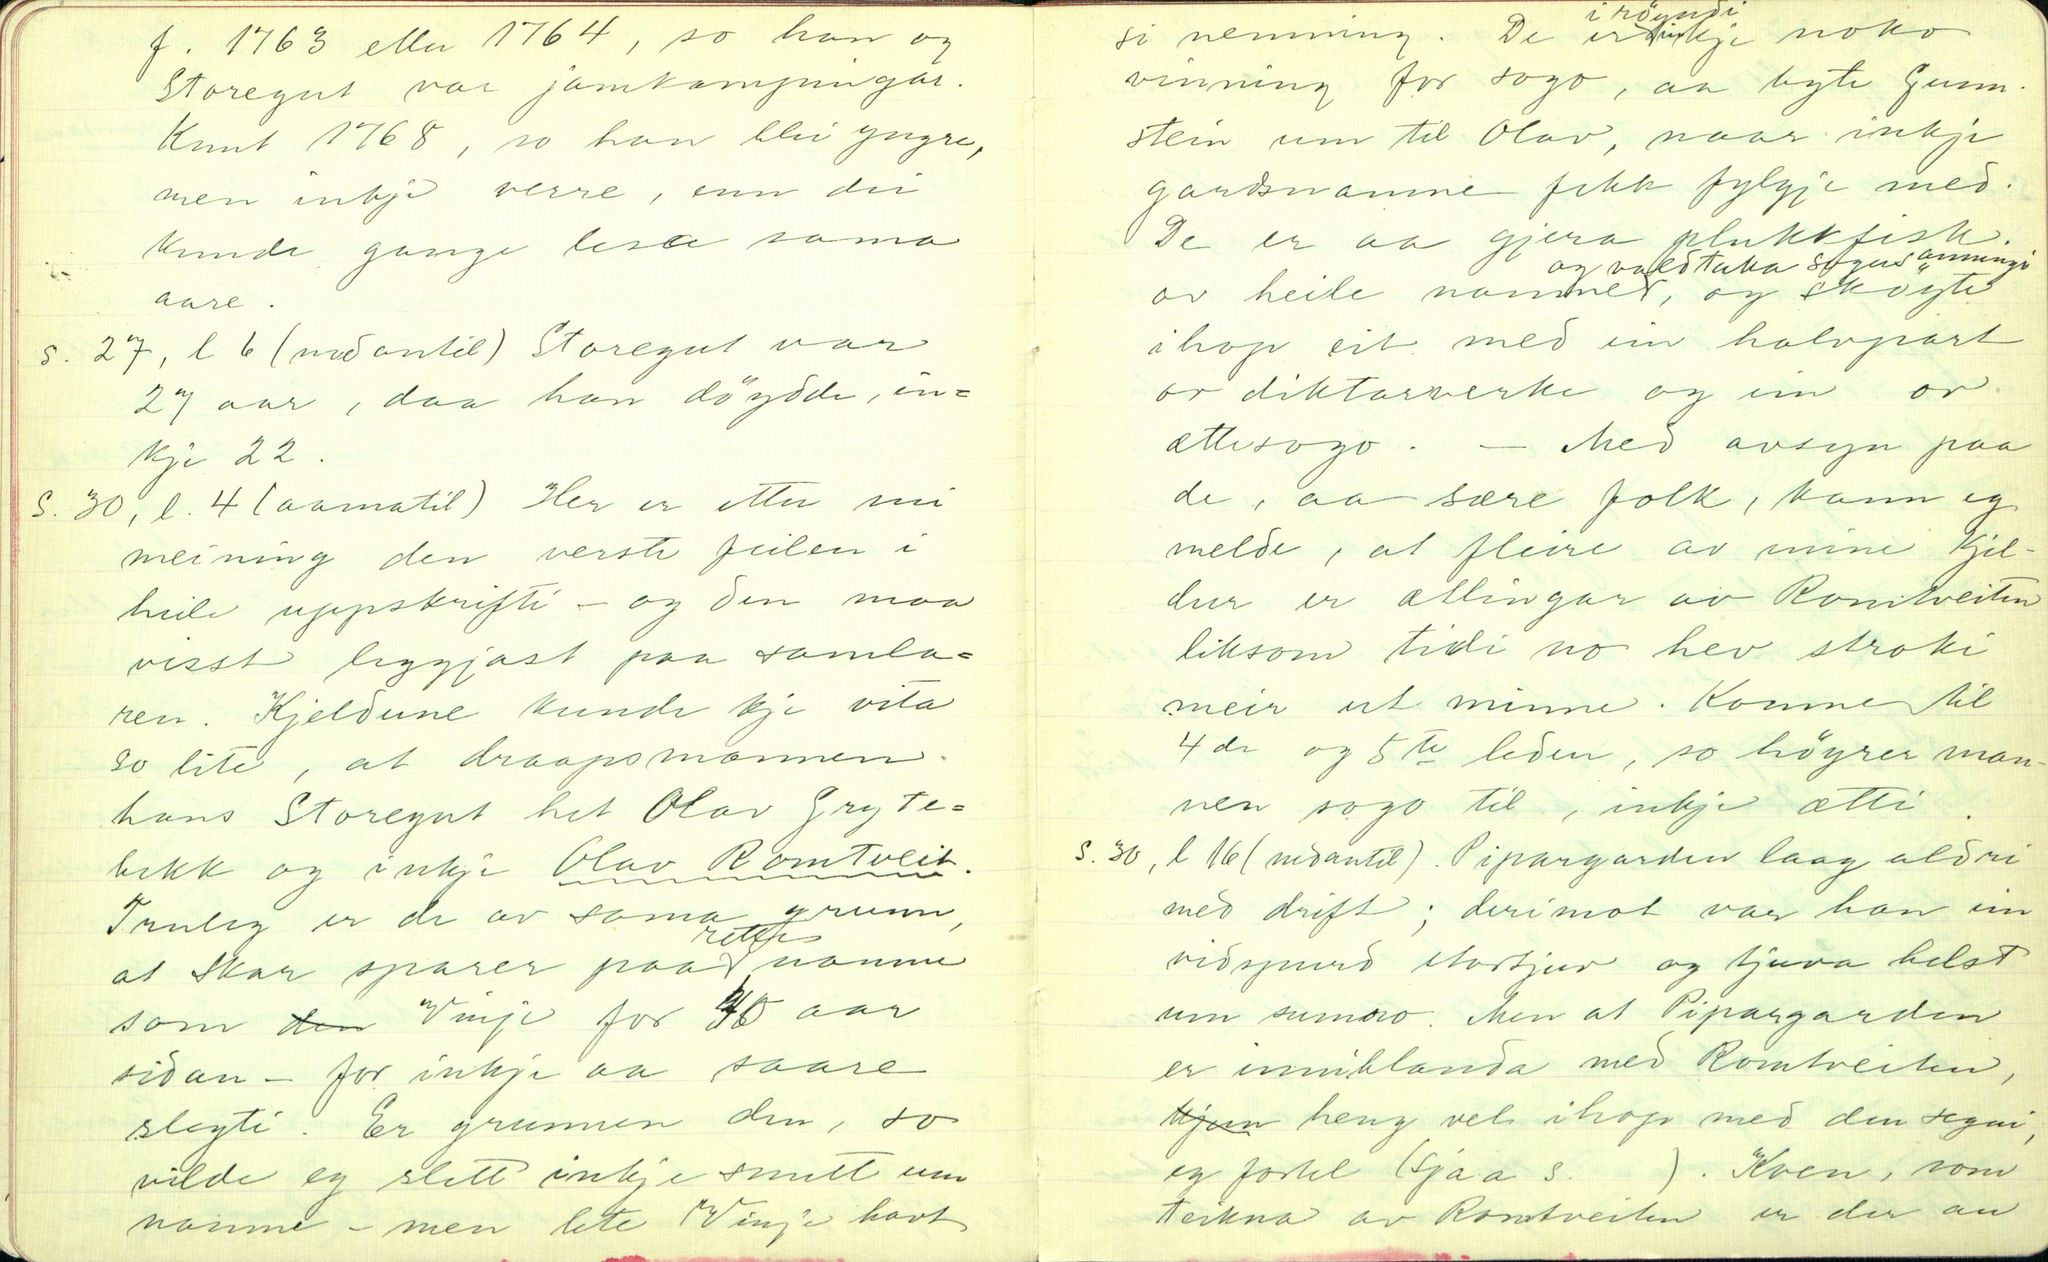 f. 1763 eller 1764, so han og
Storegut var jamkampingar.
Knut 1768, so han blei yngre,
men inkje verre, enn dei
kunde gange lesa sama
aare.
s. 27, l 6 (nedantil) Storegut var
27 aar, daa han döydde, in=
kje 22.
S. 30, l. 4 (aamatil) Her er etter mi
meining den verste feilen i
heile uppskrifti – og den maa
visst leggjast paa samla=
ren. Kjeldune kunde kje vita
so lite, at draapsmannen
hans Storegut het Olav Gryte=
bekk og inkje Olav Romtveit.
Truleg er de av sama grunn,
at Skar sparer paa rette namne
som den Vinje for 40 aar
sidan – for inkje aa saare
slegti. Er grunnen den, so
vilde eg slett inkje smett um
namne – men lete Vinje havt
si nemning. De er i röyndi inkje noko
vinning for sogo, aa byte Gunn-
stein um til Olav, naar inkje
gardsnamne fekk fylgje med.
De er aa gjera plukkfisk
og valdtaka sogusanningi
av heile namnet, og sköyte
ihop eit med ein halvpart
av diktarverke og ein av
ættesogo. – Med avsyn paa
de, aa sære folk, kann eg
melde, at fleire av mine kjel-
dur er ætlingar av Romtveiten
liksom tidi no hev stroki
meir ut minne. Komme til
4de og 5te leden, so höyrer man-
nen sogo til, inkje ætti.
S. 30, l 16 (nedantil). Pipargarden laag aldri
med drift; derimot var han ein
vidspurd stortjuv og tjuva helst
um sumro. Men at Pipargarden
er inniblanda med Romtveiten,
kjem heng vel ihop med den segni,
eg fortel (sjaa s. ). Kven, som
teikna av Romtveiten er der au